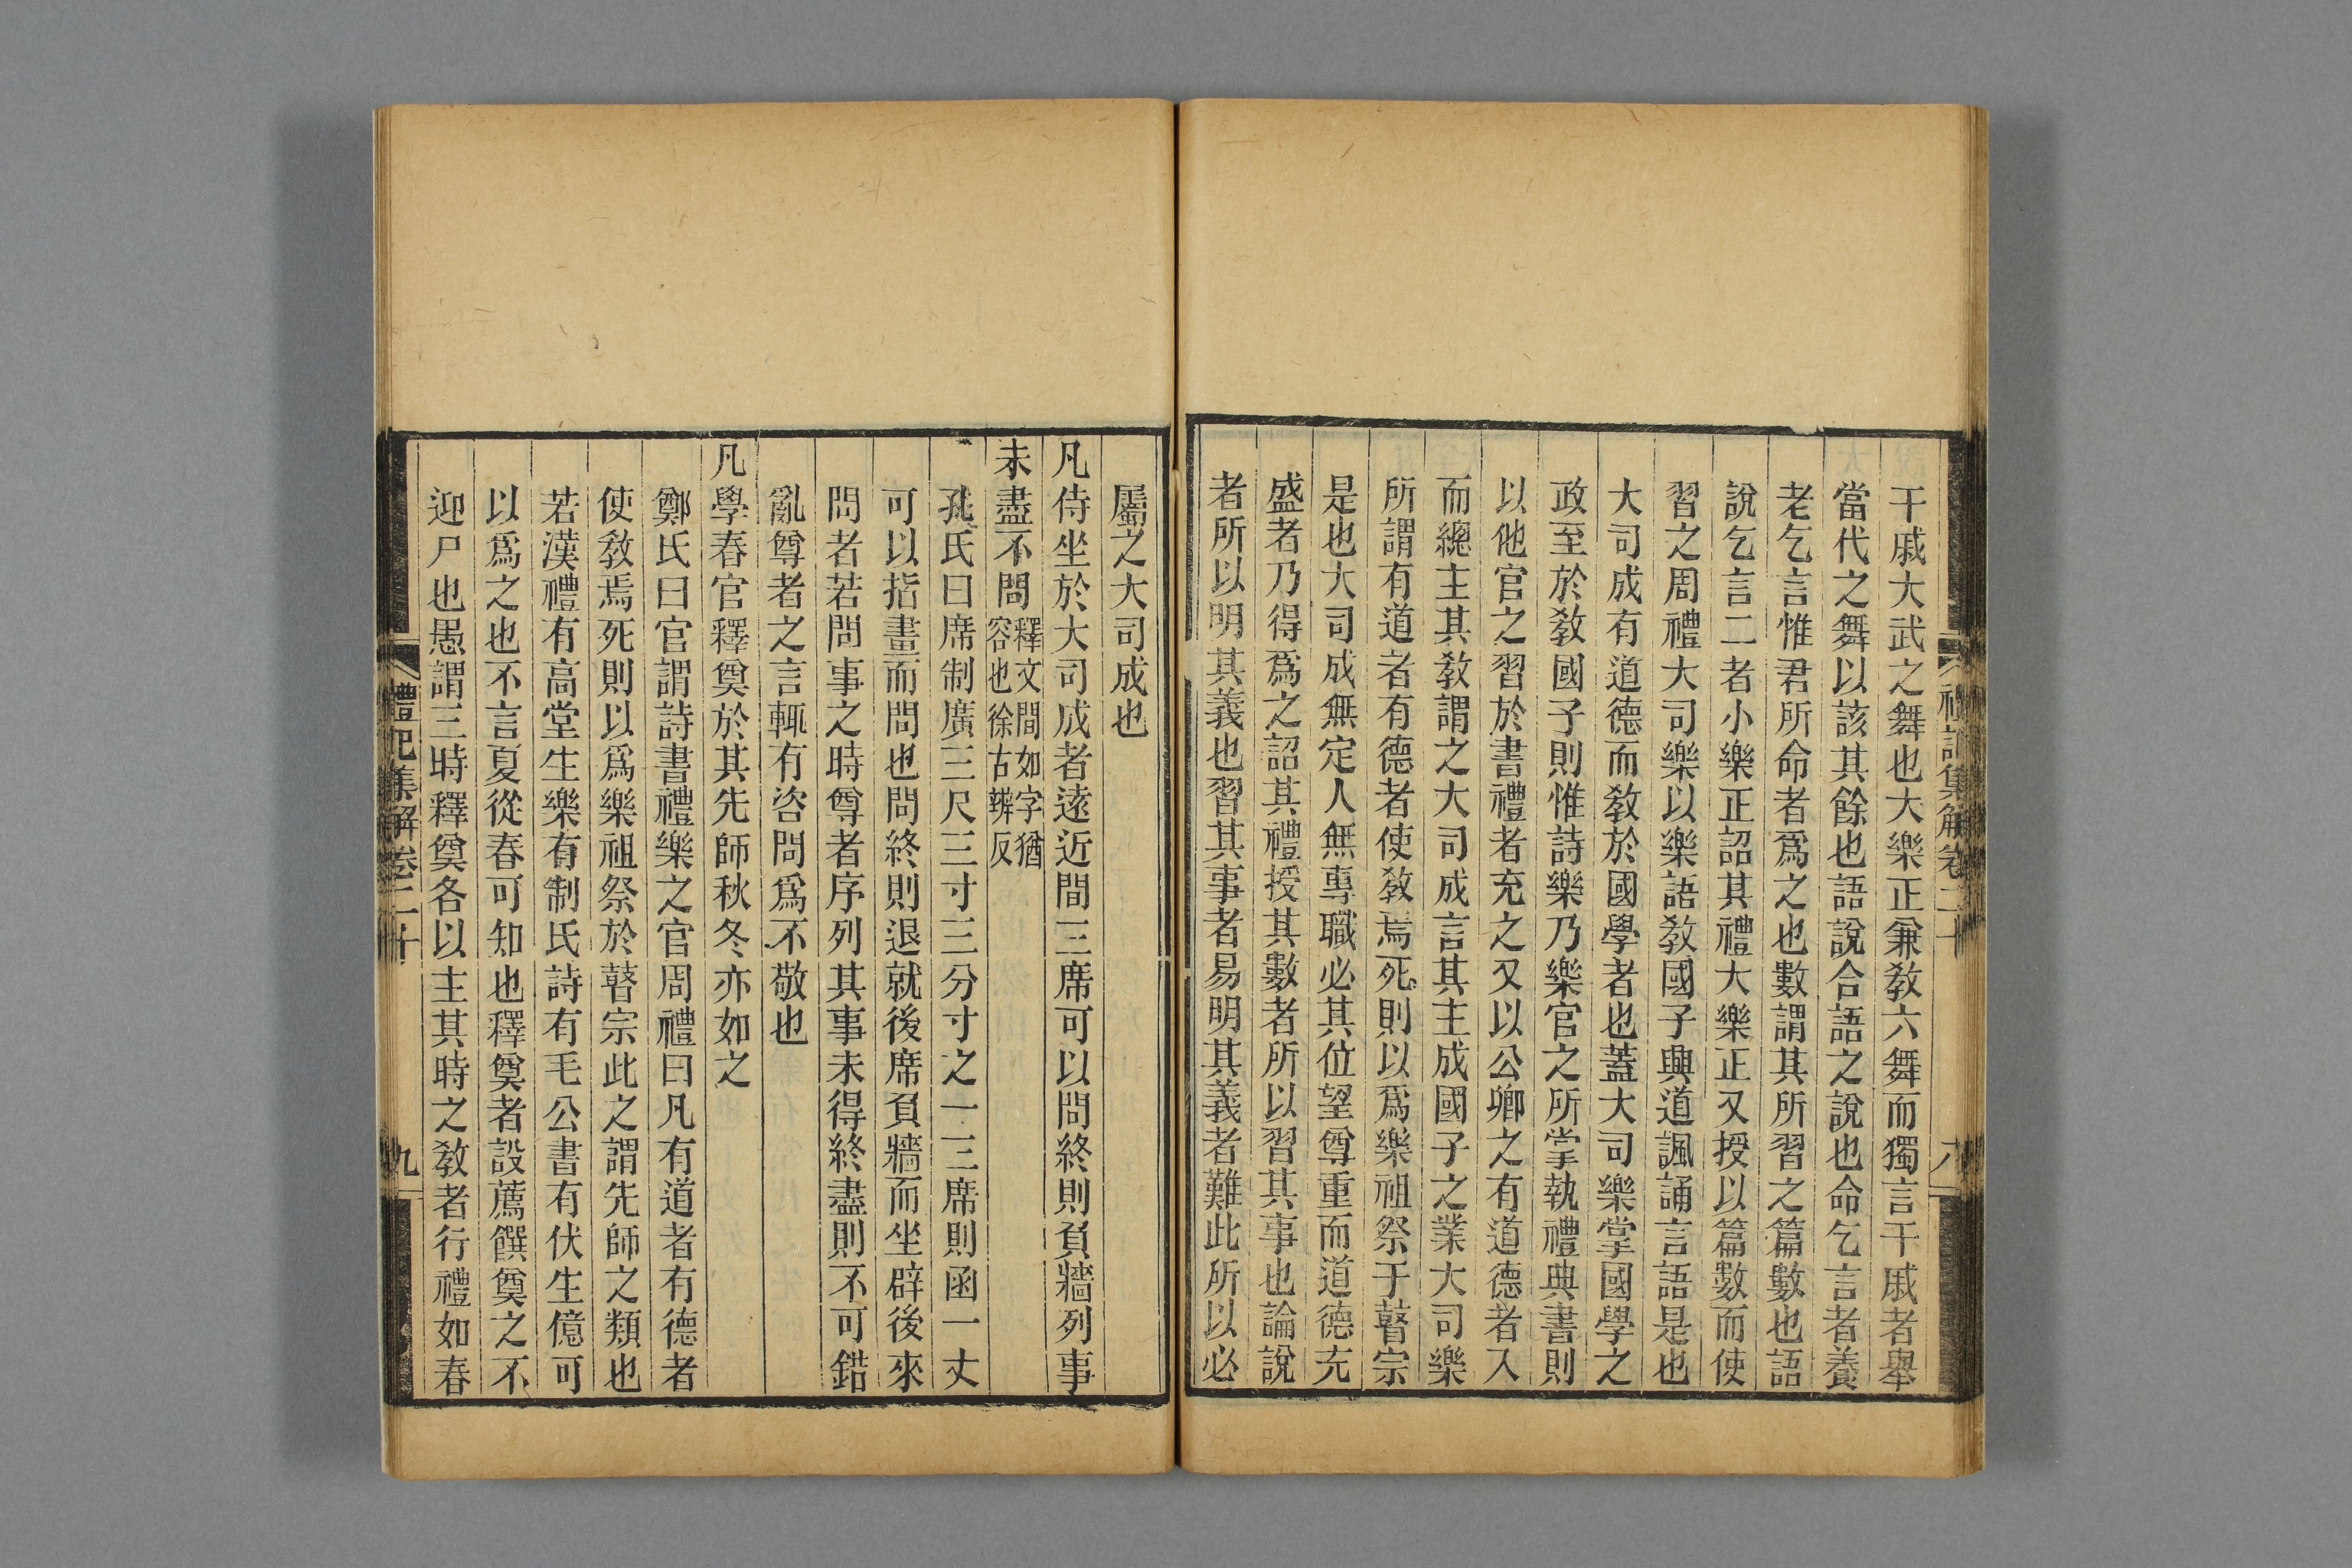 禮記集解卷二十
八
干戚大武之舞也大樂正兼敎六舞而獨言干戚者舉
當代之舞以該其餘也語說合語之說也命乞言者養
老乞言惟君所命者爲之也數謂其所習之篇數也語
說乞言二者小樂正詔其禮大樂正又授以篇數而使
習之周禮大司樂以樂語敎國子興道諷誦言語是也
大司成有道德而敎於國學者也蓋大司樂掌國學之
政至於敎國子則惟詩樂乃樂官之所掌執禮典書則
以他官之習於書禮者充之又以公卿之有道德者入
而總主其敎謂之大司成言其主成國子之業大司樂
所謂有道者有德者使敎焉死則以爲樂祖祭于瞽宗
是也大司成無定人無專職必其位望尊重而道德充
盛者乃得爲之詔其禮授其數者所以習其事也論說
者所以明其義也習其事者易明其義者難此所以必
屬之大司成也
凡侍坐於大司成者遠近間三席可以問終則負牆列事
未盡不問釋文間如字猶
容也徐古辨反
孔氏曰席制廣三尺三寸三分寸之一三席則函一丈
可以指畫而問也問終則退就後席負牆而坐辟後來
問者若問事之時尊者序列其事未得終盡則不可錯
亂尊者之言輒有咨問爲不敬也
凡學春官釋奠於其先師秋冬亦如之
鄭氏曰官謂詩書禮樂之官周禮曰凡有道者有德者
使敎焉死則以爲樂祖祭於瞽宗此之謂先師之類也
若漢禮有高堂生樂有制氏詩有毛公書有伏生億可
以爲之也不言夏從春可知也釋奠者設薦饌奠之不
迎尸也愚謂三時釋奠各以主其時之敎者行禮如春
禮記集解卷二十
九